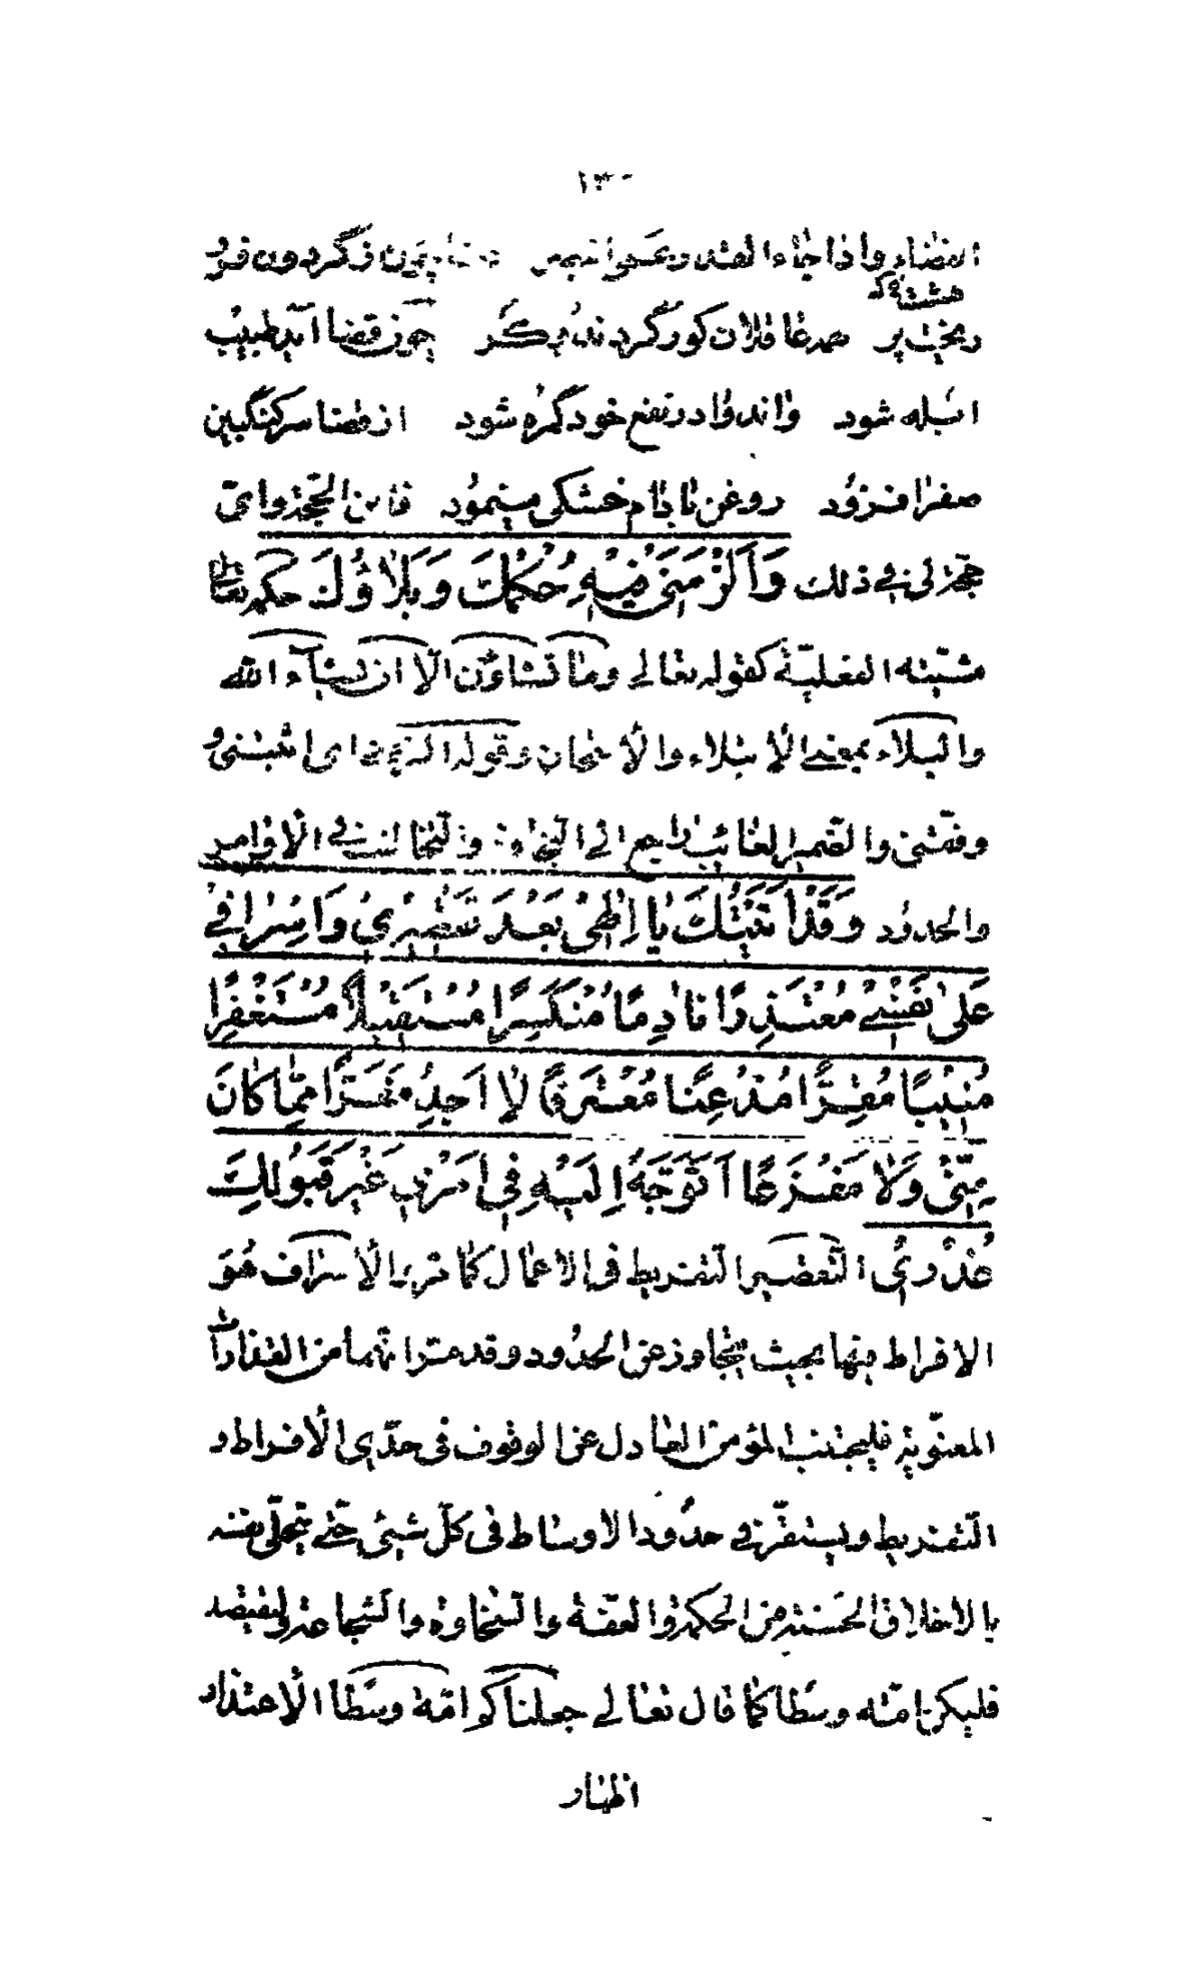 ١٣٠
القضاء واذا جاء القدر وعمی البصر چون ز گردون فرو
هشته که
ریخت پر همه عاقلان کور گردند و کر چون قضا آید طبیب
ابله شود واندوا در نفع خود گمره شود از قضا سرکنگبین
صفرا فزود روغن بادام خشکی مینمود فاین الحجة وای
حجة لی فی ذلك وَاَلْزَمَنی فیهِ حُكْمُكَ وَبَلاؤُكَ حكمه تعالی
مشیته الفعلیة كقوله تعالی وما تشاؤن الا ان یشاء الله
والبلاء بمعنی الابتلاء والامتحان وقوله الزمنی ای اثبتنی و
وفقنی والضمیر الغائب راجع الی التجاوز والتخالف فی الاوامر
والحدود وَقَدْ اَتَیْتُكَ یا اِلهی بَعْدَ تَقْصیری وَاِسْرافی
عَلی نَفْسی مُعْتَذِرًا نادِمًا مُنْكَسِرًا مُسْتَقیلاً مُسْتَغْفِرًا
مُنیبًا مُقِرًّا مُذْعِنًا مُعْتَرِفًا لا اَجِدُ مَفَرًّا مِمّا كانَ
مِنّی وَلا مَفْزَعًا اَتَوَجَّهُ اِلَیْهِ فی اَمْری غَیْرَ قَبُولِكَ
عُذْری التقصیر التفریط فی الاعمال كما مر والاسراف هُوَ
الافراط فیها بحیث یتجاوز عن الحدود وقد مر انهما من القذارات
المعنویة فلیجتنب المؤمن العادل عن الوقوف فی حدی الافراط و
التفریط ویستقر فی حدود الاوساط فی كل شیئ حتی یتحلی نفسه
بالاخلاق الحسنة من الحكمة والعفة والسخاوة والشجاعة ولیقتصد
فلیكن امة وسطا كما قال تعالی جعلناكم امة وسطا الاعتذار
اظهار